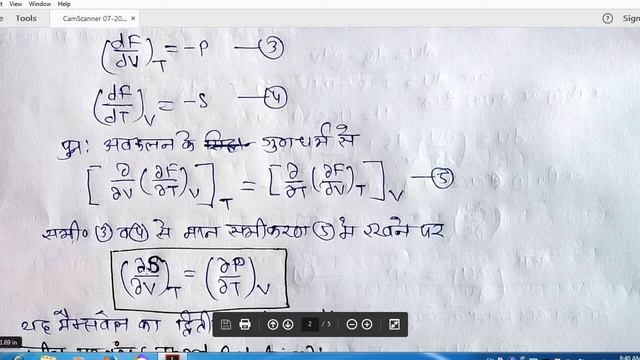 View Window Help
Tools CamScanner 07-20... × ? Sign
(dF/dV)_T = -P —③
(dF/dT)_V = -S —④
पुनः अवकलन के गुणधर्म से
[∂/∂V (∂F/∂T)_V]_T = [∂/∂T (∂F/∂V)_T]_V —⑤
समी० ③ व ④ से मान समीकरण ⑤ में रखने पर
(∂S/∂V)_T = (∂P/∂T)_V
यह मैक्सवेल का द्विती
2 / 5